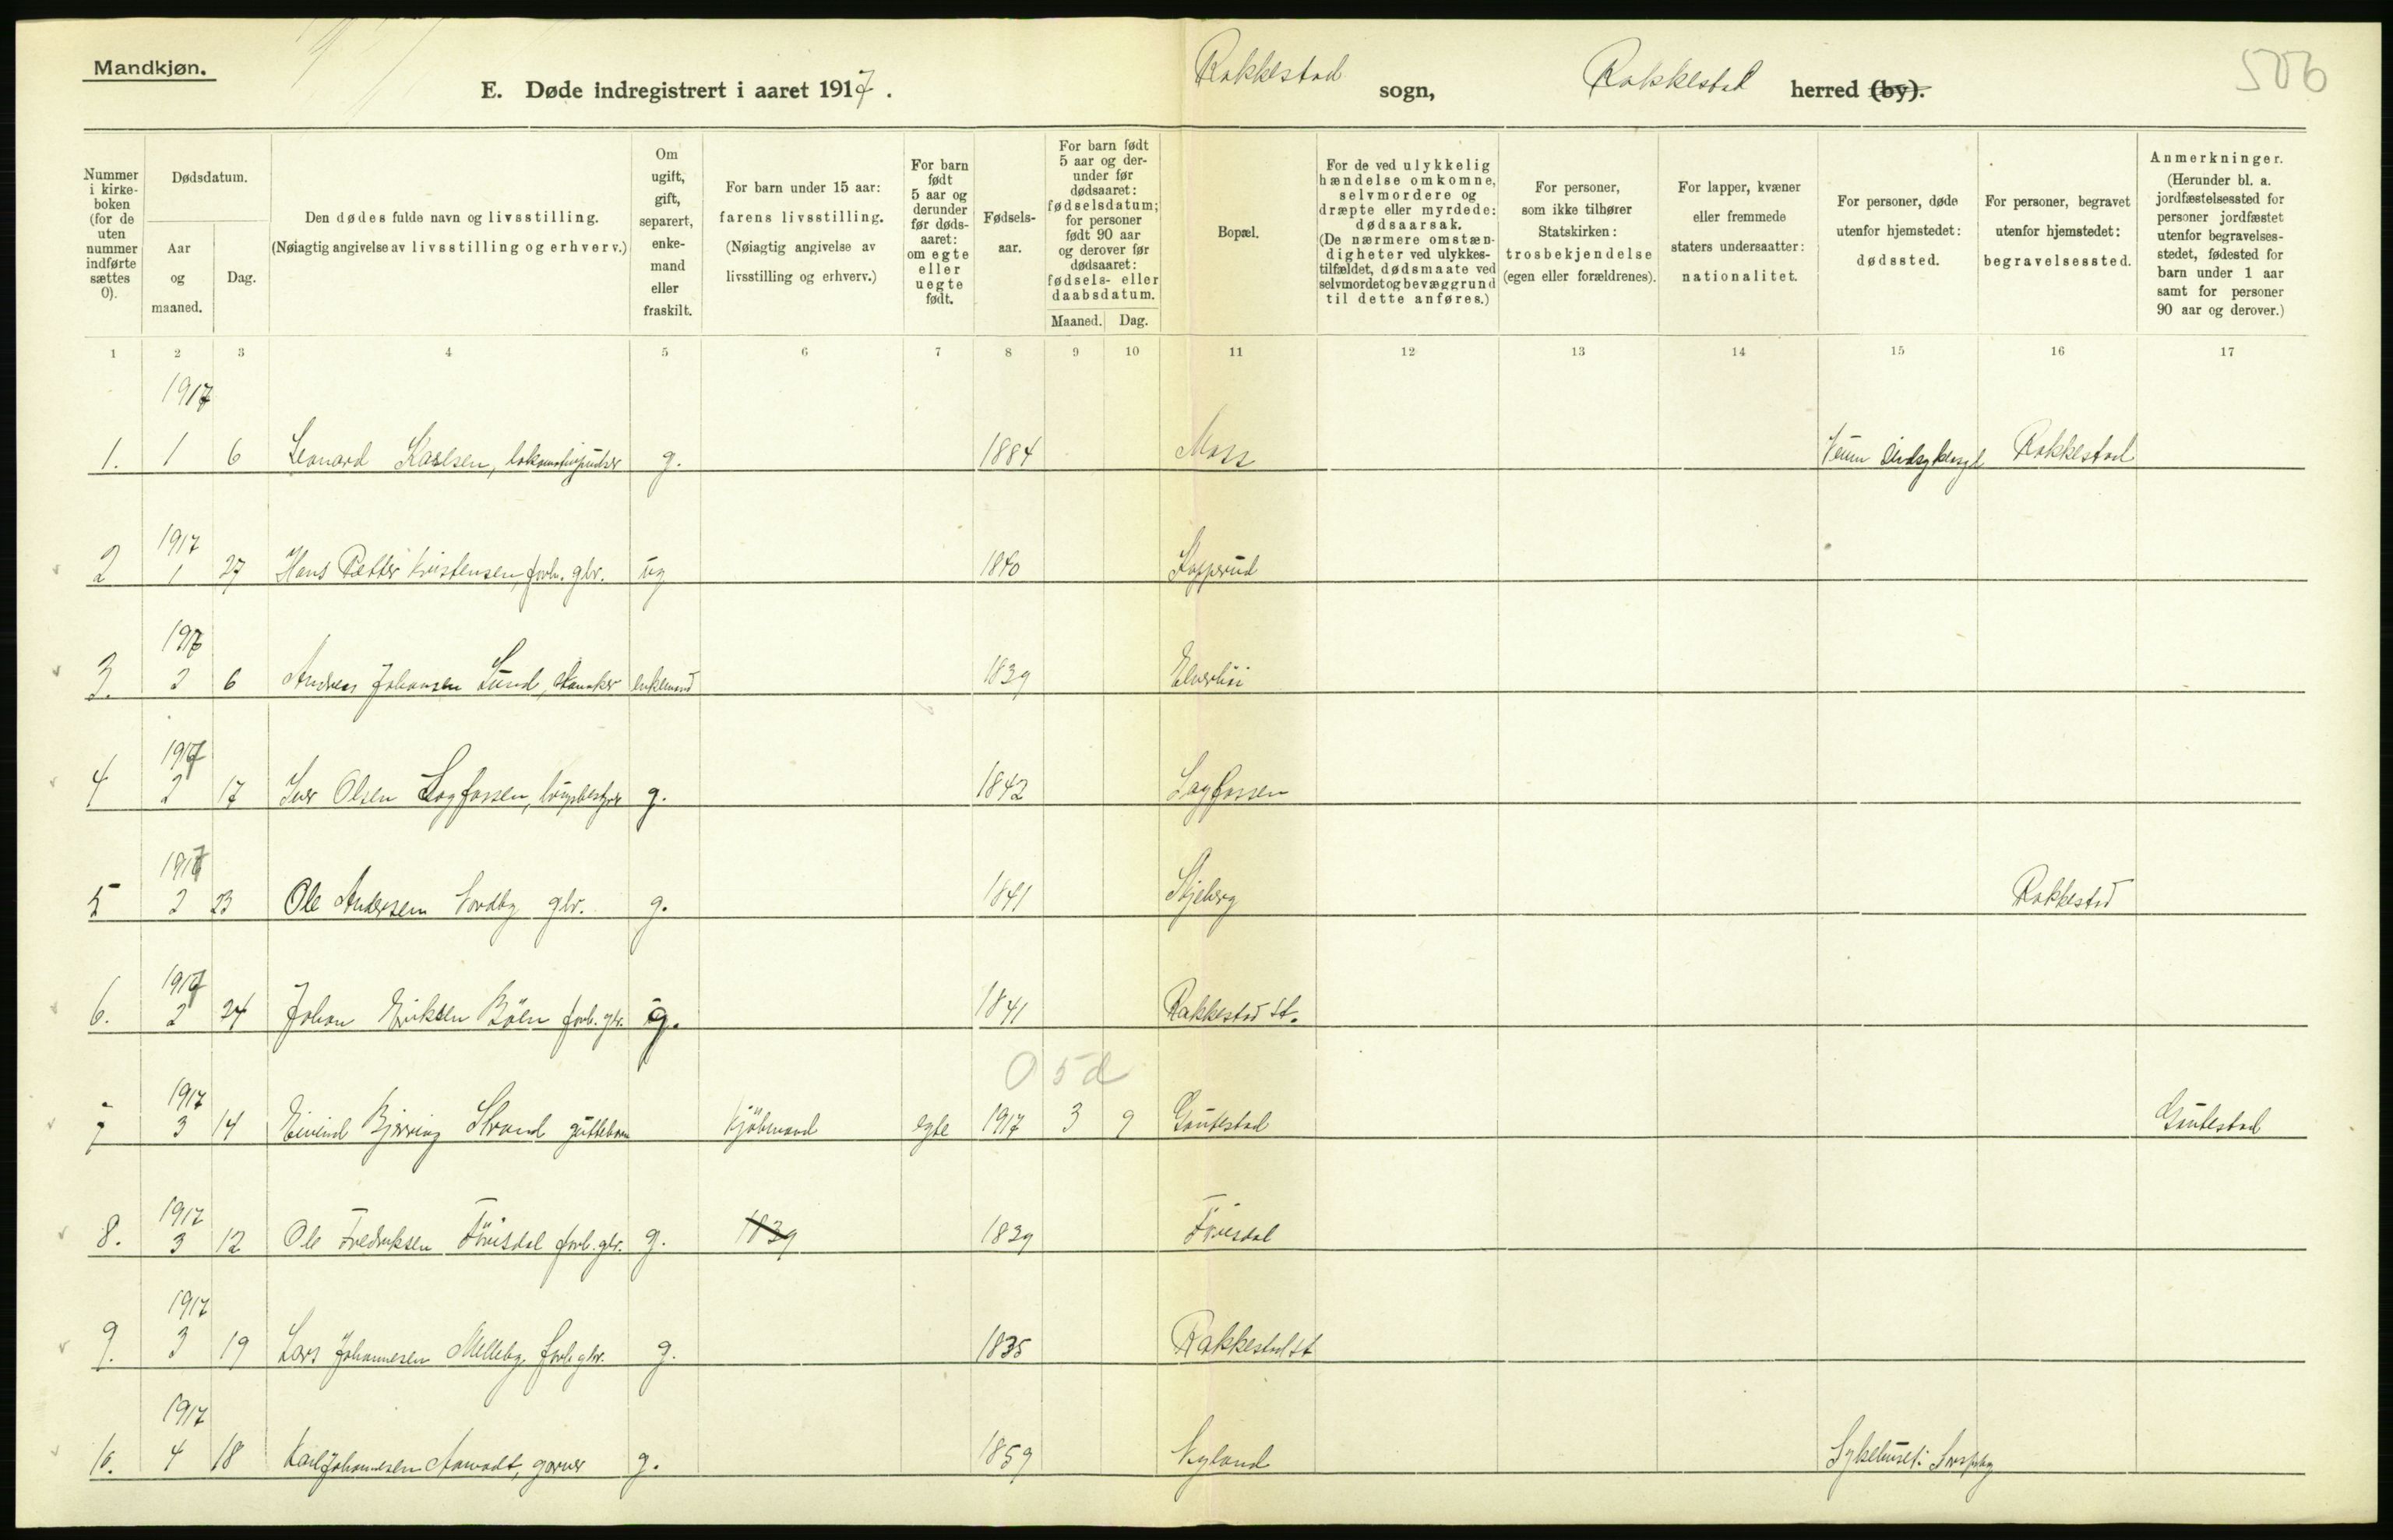 Mandkjøn.
E. Døde indregistrert i aaret 1917.
Rakkestad sogn, Rakkestad herred (by).
506
Nummer i kirkeboken (for de uten nummer indførte sættes 0).
Dødsdatum.
Aar og maaned.
Dag.
Den dødes fulde navn og livsstilling.
(Nøiagtig angivelse av livsstilling og erhverv.)
Om ugift, gift, separert, enkemand eller fraskilt.
For barn under 15 aar: farens livsstilling.
(Nøiagtig angivelse av livsstilling og erhverv.)
For barn født 5 aar og derunder før dødsaaret: om egte eller uegte født.
Fødselsaar.
For barn født 5 aar og derunder før dødsaaret: fødselsdatum; for personer født 90 aar og derover før dødsaaret: fødsels- eller daabsdatum.
Maaned. Dag.
Bopæl.
For de ved ulykkelig hændelse omkomne, selvmordere og dræpte eller myrdede: dødsaarsak.
(De nærmere omstændigheter ved ulykkestilfældet, dødsmaate ved selvmordet og bevæggrund til dette anføres.)
For personer, som ikke tilhører Statskirken: trosbekjendelse (egen eller forældrenes).
For lapper, kvæner eller fremmede staters undersaatter: nationalitet.
For personer, døde utenfor hjemstedet: dødssted.
For personer, begravet utenfor hjemstedet: begravelsessted.
Anmerkninger.
(Herunder bl. a. jordfæstelsessted for personer jordfæstet utenfor begravelsesstedet, fødested for barn under 1 aar samt for personer 90 aar og derover.)
1 2 3 4 5 6 7 8 9 10 11 12 13 14 15 16 17
1917
1. 1 6 Leonard Karlsen, lokomotivpudser g. 1884 Moss Veum Rakkestad
1917
2 1 27 Hans Petter Kristensen, forh. gbr. ug 1840 Kopperud
1917
3. 2 6 Andreas Johansen Lund, enkemand 1839
1917
4 2 17 Iver Olsen Lagfossen, g. 1842 Lagfossen
1917
5 2 23 Ole Andersen Nordby gbr. g. 1841 Skjeberg Rakkestad
1917
6. 2 24 Johan Eriksen Böen forh. gbr. g. 1841 Rakkestad st.
0 5 d
1917
7 3 14 Eivind Bjerring Strand guttebarn Kjöbmand egte 1917 3 9 Gautestad Gautestad
1917
8. 3 12 Ole Fredriksen Förisdal forh. gbr. g. 1839 1839 Förisdal
1917
9. 3 19 Lars Johannesen Melleby forh. gbr. g. 1835 Rakkestad st
1917
10. 4 18 Karl Johannesen garver g. 1859 Nyland Sykehuset i Sarpsbg